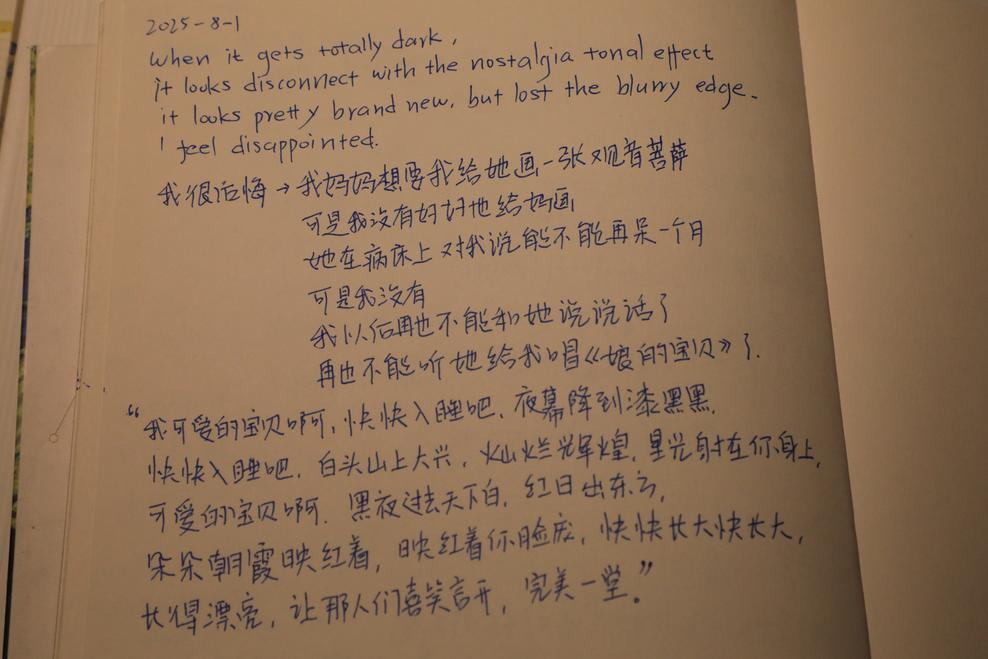 2025-8-1
when it gets totally dark,
it looks disconnect with the nostalgia tonal effect
it looks pretty brand new, but lost the blurry edge.
I feel disappointed.
我很后悔→我妈妈想要我给她画一张观音菩萨
可是我没有好好地给妈画
她在病床上对我说能不能再呆一个月
可是我没有
我以后再也不能和她说说话了
再也不能听她给我唱《娘的宝贝》了.
“我可爱的宝贝啊,快快入睡吧.夜幕降到漆黑黑.
快快入睡吧.白头山上大兴,灿烂光辉煌,星光射在你身上,
可爱的宝贝啊.黑夜过去天下白.红日出东方,
朵朵朝霞映红着,映红着你脸庞,快快长大快长大,
长得漂亮,让那人们喜笑言开,完美一堂。”